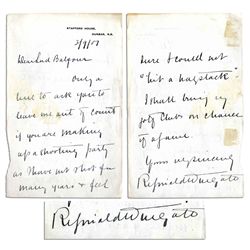 STAFFORD HOUSE,
DUNBAR, N.B.
Dear Lord Balfour
Only a
line to ask you to
leave me out of count
if you are making
up a shooting party
as I have not shot for
many years & feel
sure I could not
"hit a haystack"
I shall bring my
golf clubs on chance
of a game.
Yours very sincerely
Reginald Wingate
Reginald Wingate